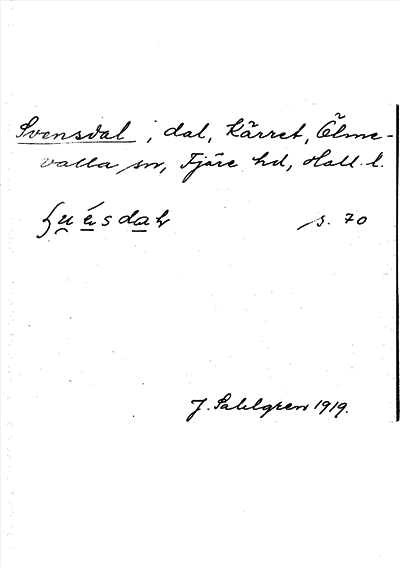 Svensdal, dal, Kärret, Ölme-
valla sn, Fjäre hd, Hall. l.
s. 70
J. Sahlgren 1919.